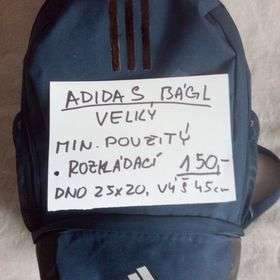 ADIDAS BÁGL
VELKÝ
MIN. POUŽITÝ
• ROZKLÁDACÍ 150,-
DNO 25x20, VÝŠ 45cm